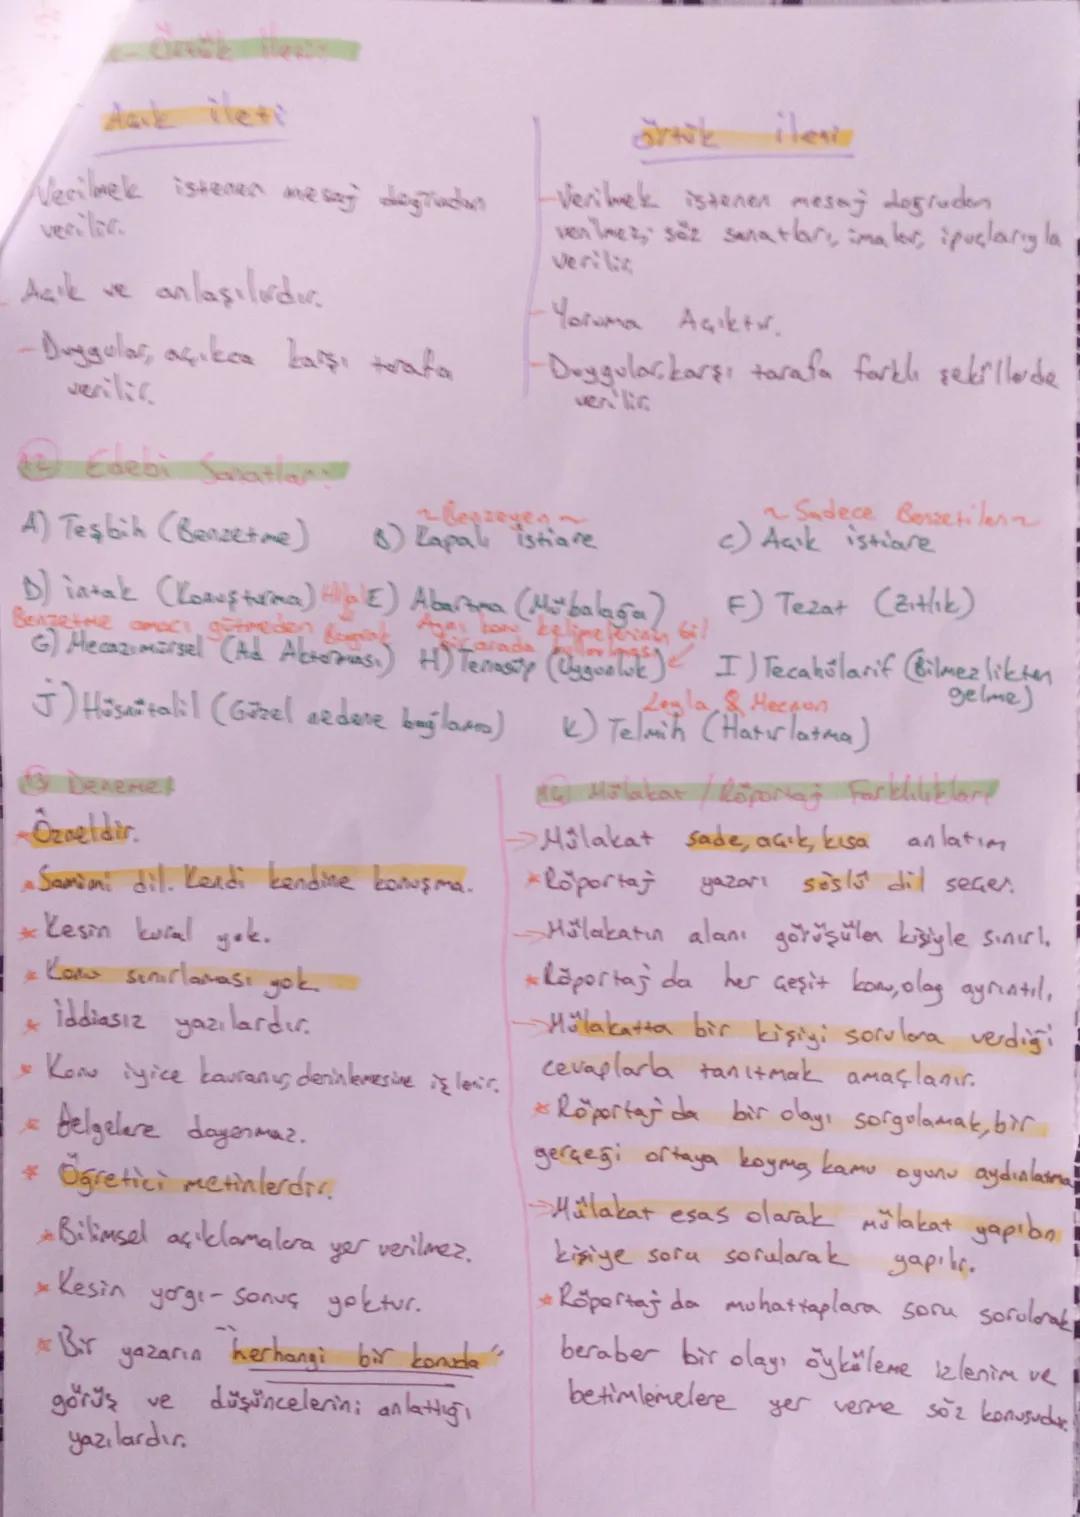 Örtük İleti
Açık ileti
Verilmek istenen mesaj doğrudan
verilir.
Açık ve anlaşılırdır.
- Duygular, açıkca karşı tarafa
verilir.
örtük ileti
- Verilmek istenen mesaj doğrudan
verilmez; söz sanatları, imalar, ipuçlarıyla
verilir.
- Yoruma Açıktır.
- Duygular, karşı tarafa farklı şekillerde
verilir.
12 Edebi Sanatlar:
A) Teşbih (Benzetme)
~ Benzeyen ~
B) Kapalı istiare
~ Sadece Benzetilen ~
C) Açık istiare
D) intak (Konuşturma)
E) Abartma (Mübalağa)
F) Tezat (Zıtlık)
Benzetme amacı gütmeden
G) Mecazımürsel (Ad Aktarması)
Aynı konu kelimelerinin
bir arada kullanılması
H) Tenasüp (Uygunluk)
I) Tecahülarif (Bilmezlikten
gelme)
J) Hüsnütalil (Güzel nedene bağlama)
Leyla & Mecnun
K) Telmih (Hatırlatma)
13 Deneme:
Özneldir.
Samimi dil. Kendi kendine konuşma.
* Kesin kural yok.
* Konu sınırlaması yok
* iddiasız yazılardır.
* Konu iyice kavranış, derinlemesine işlenir.
* Belgelere dayanmaz.
* Öğretici metinlerdir.
* Bilimsel açıklamalara yer verilmez.
* Kesin yargı - sonuç yoktur.
* Bir yazarın "herhangi bir konuda"
görüş ve düşüncelerini anlattığı
yazılardır.
14 Mülakat / Röportaj Farklılıkları
→ Mülakat sade, açık, kısa anlatım
* Röportaj yazarı süslü dil seçer.
→ Mülakatın alanı görüşülen kişiyle sınırlı.
* Röportaj da her çeşit konu, olay ayrıntılı,
→ Mülakatta bir kişiyi sorulara verdiği
cevaplarla tanıtmak amaçlanır.
* Röportaj da bir olayı sorgulamak, bir
gerçeği ortaya koyma, kamu oyunu aydınlatma
→ Mülakat esas olarak mülakat yapılan
kişiye soru sorularak yapılır.
* Röportaj da muhattaplara soru sorularak
beraber bir olayı öyküleme izlenim ve
betimlemelere yer verme söz konusudur.